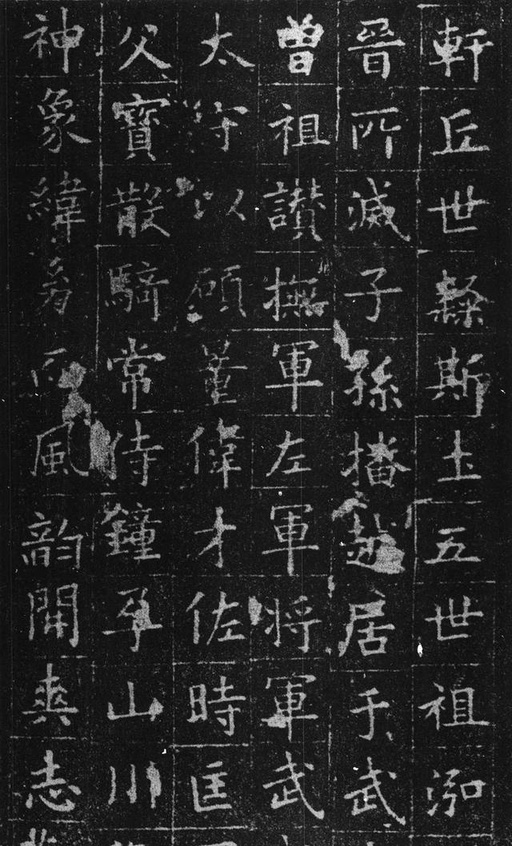 軒丘世隸斯土五世祖泓
晉所滅子孫播越居于武
曾祖讚撫軍左軍将軍武
太守以碩量偉才佐時匡
父寳散騎常侍鐘孕山川
神象緯著而風韵開爽志